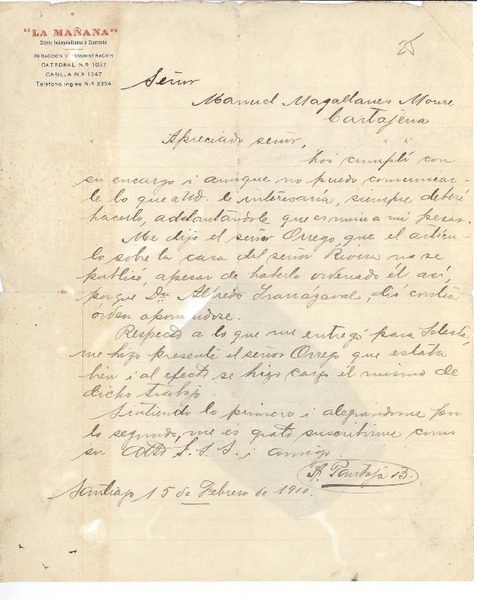 "LA MAÑANA"
Diario Independiente e Ilustrado
REDACCION Y ADMINISTRACION
CATEDRAL N.º 1037
CASILLA N.º 1547
Teléfono Ingles N.º 2354
25
Señor
Manuel Magallanes Moure
Cartajena
Apreciado señor,
hoi cumplí con
su encargo i aunque no puedo comunicar-
le lo que a Ud. le interesaría, siempre deberé
hacerlo, adelantándole que es mui a mi pesar.
Me dijo el señor Orrego que el artícu-
lo sobre la casa del señor Rivera no se
publicó, apesar de haberlo ordenado él así,
porque Dn Alfredo Irarrázaval, dió contra
órden oponiéndose.
Respecto a lo que me entregó para
me hizo presente el señor Orrego que estaba
bien i al efecto se hizo cargo él mismo de
dicho trabajo.
Sintiendo lo primero i alegrándome por
lo segundo, me es grato suscribirme como
su Atto S. S. S. i amigo.
A. Pantoja B.
Santiago 15 de Febrero de 1910.